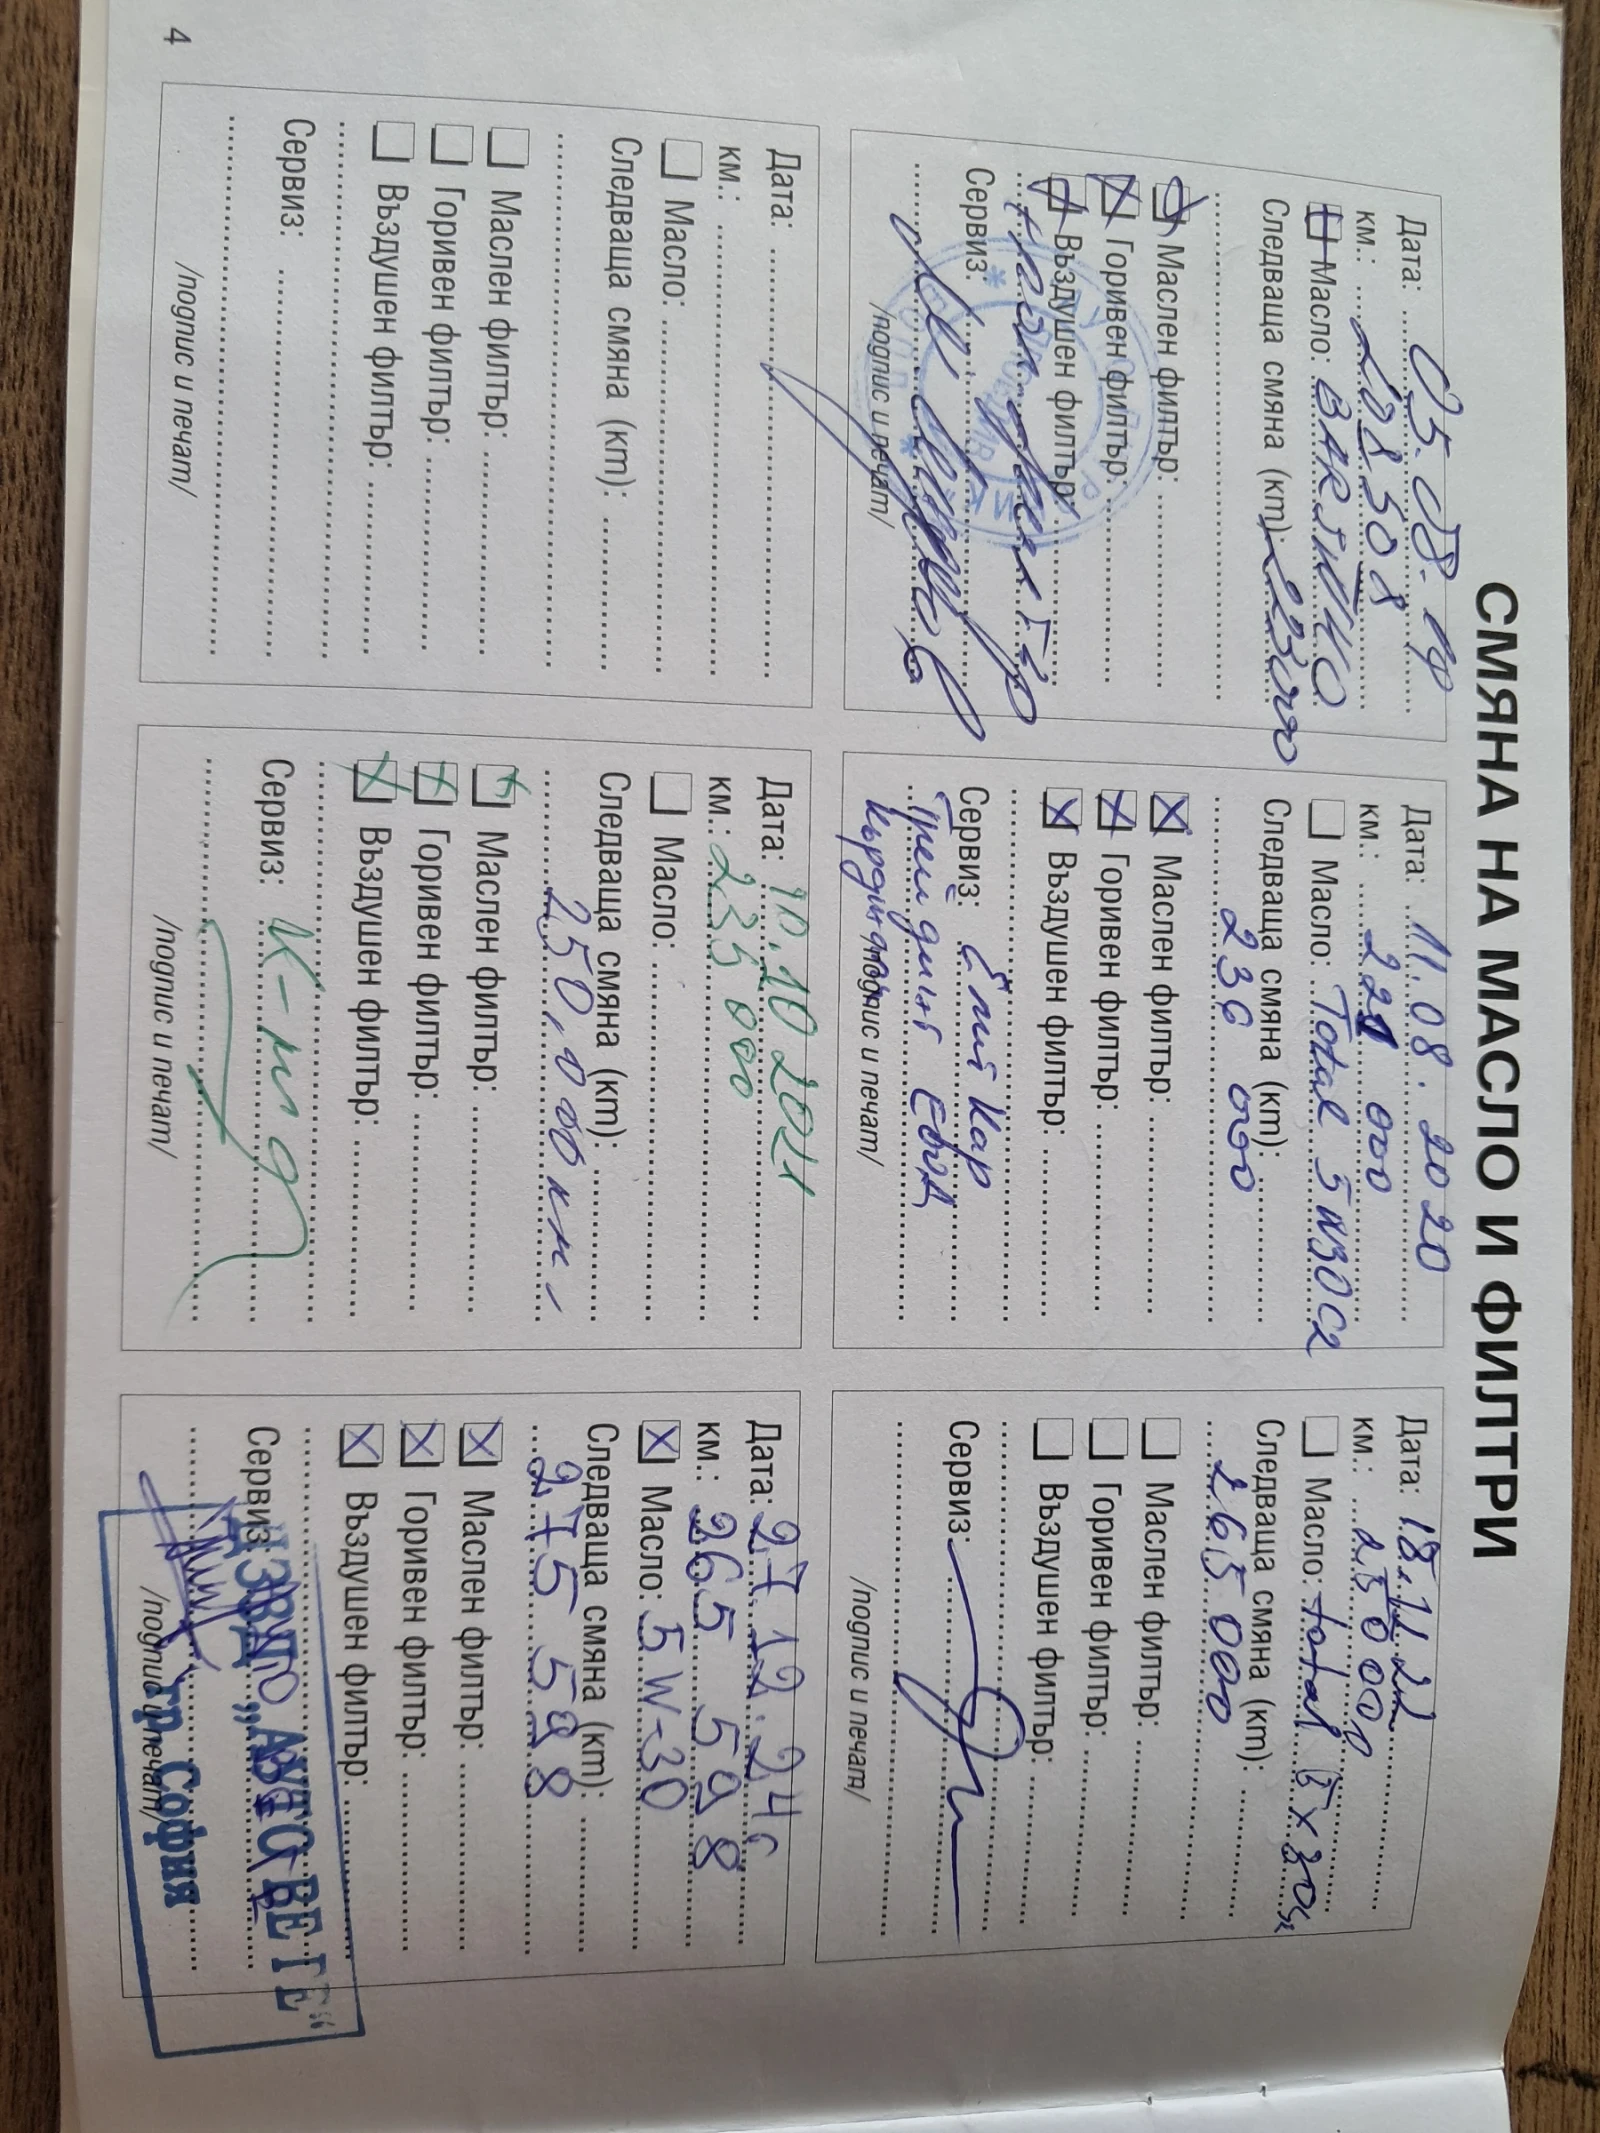 СМЯНА НА МАСЛО И ФИЛТРИ
Дата: 05.08.19
км.: 208508
Масло:
Следваща смяна (km) 223000
Маслен филтър:
Горивен филтър:
Въздушен филтър:
Сервиз:
/подпис и печат/
Дата: 11.08.2020
км.: 221 000
Масло: Total 5W30 C2
Следваща смяна (km):
236 000
Маслен филтър:
Горивен филтър:
Въздушен филтър:
Сервиз: Ейч Кар
Трейдинг ЕООД
Кърджали
/подпис и печат/
Дата: 18.11.22
км.: 250000
Масло: total 5x30
Следваща смяна (km):
265000
Маслен филтър:
Горивен филтър:
Въздушен филтър:
Сервиз:
/подпис и печат/
Дата:
км.:
Масло:
Следваща смяна (km):
Маслен филтър:
Горивен филтър:
Въздушен филтър:
Сервиз:
/подпис и печат/
Дата: 10.10 2021
км.: 235 000
Масло:
Следваща смяна (km):
250.000 км
Маслен филтър:
Горивен филтър:
Въздушен филтър:
Сервиз:
/подпис и печат/
Дата: 27.12.24г
км.: 265 598
Масло: 5W-30
Следваща смяна (km):
275 598
Маслен филтър:
Горивен филтър:
Въздушен филтър:
Сервиз:
ДЗЗД „АУТО ВЕГЕ“
гр. София
/подпис и печат/
4